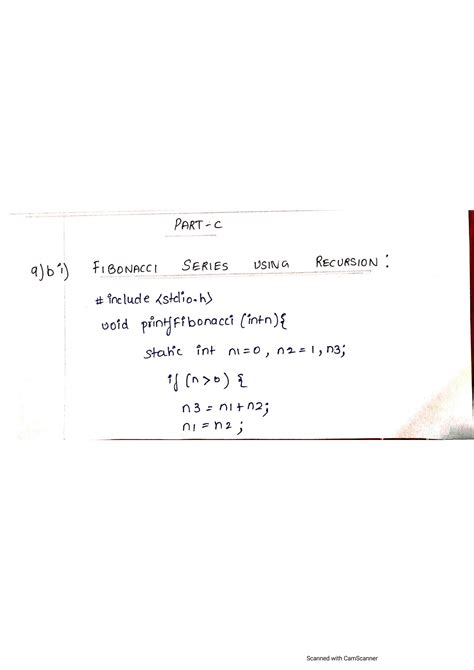 PART-C
9)b i) FIBONACCI SERIES USING RECURSION:
# include <stdio.h>
void printfFibonacci (intn){
static int n1=0, n2=1, n3;
if (n>0) {
n3 = n1+n2;
n1 = n2;
Scanned with CamScanner